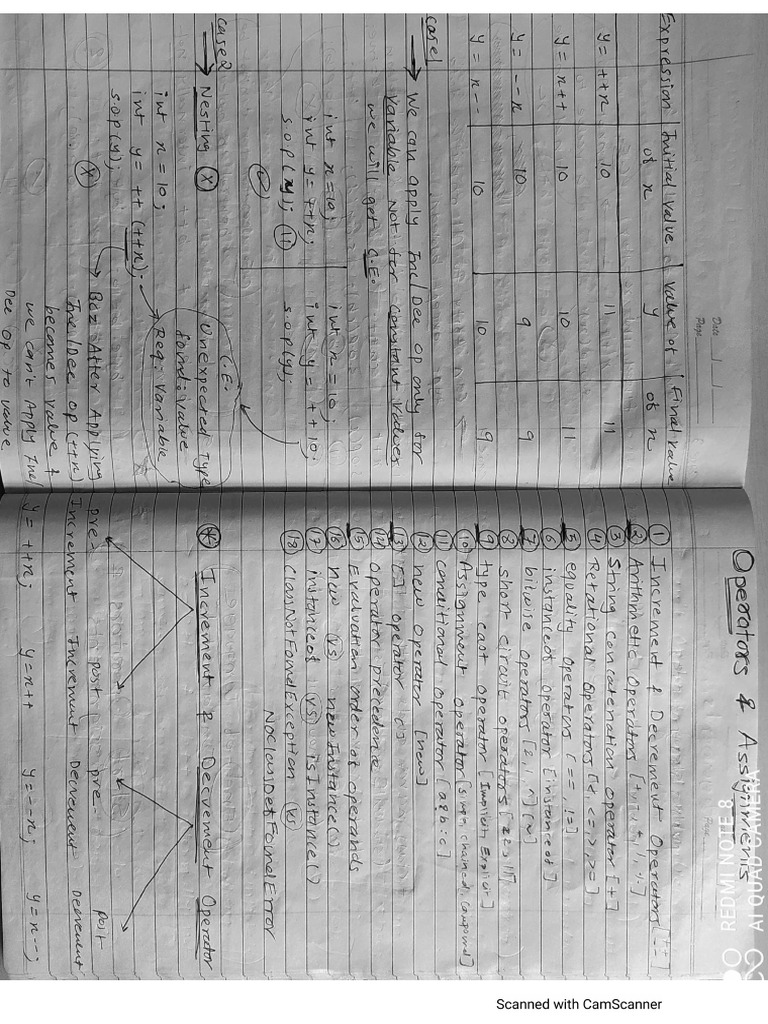 Operators & Assignments
① Increment & Decrement Operators [++
② Arithmetic Operators [+, -, *, /, %]
③ String concatenation operator [+]
④ Relational Operators [<, <=, >, >=]
⑤ equality operators [==, !=]
⑥ instanceof operator [instanceof]
⑦ bitwise operators [&, |, ^] [~]
⑧ short circuit operators [&&, ||]
⑨ type cast operator [Implicit Explicit]
⑩ Assignment operator [simple, chained, compound]
⑪ conditional operator [a?b:c]
⑫ new operator [new]
⑬ [] operator
⑭ operator precedence
⑮ Evaluation order of operands
⑯ new vs newInstance()
⑰ instanceof vs isInstance()
⑱ ClassNotFoundException vs
NoClassDefFoundError
Increment & Decrement Operator
pre- post pre post
Increment Increment Decrement Decrement
y = ++x; y = x++ y = --x; y = x--;
Date
Page
Expression Initial value of x value of y Final value of x
y = ++x 10 11 11
y = x++ 10 10 11
y = --x 10 9 9
y = x-- 10 10 9
case1
→ We can apply Inc/Dec op only for
variable Not for constant values
we will get C.E.
int x = 10; int x = 10;
int y = ++x; int y = ++10;
sop(y); 11 sop(y);
case2
→ Nesting X
C.E.
Unexpected Type
found: value
Req: Variable
int x = 10;
int y = ++(++x);
sop(y);
X
→ Coz After Applying
Inc/Dec op (++x)
becomes value &
we can't Apply Inc/
Dec op to value
REDMI NOTE 8
AI QUAD CAMERA
Scanned with CamScanner